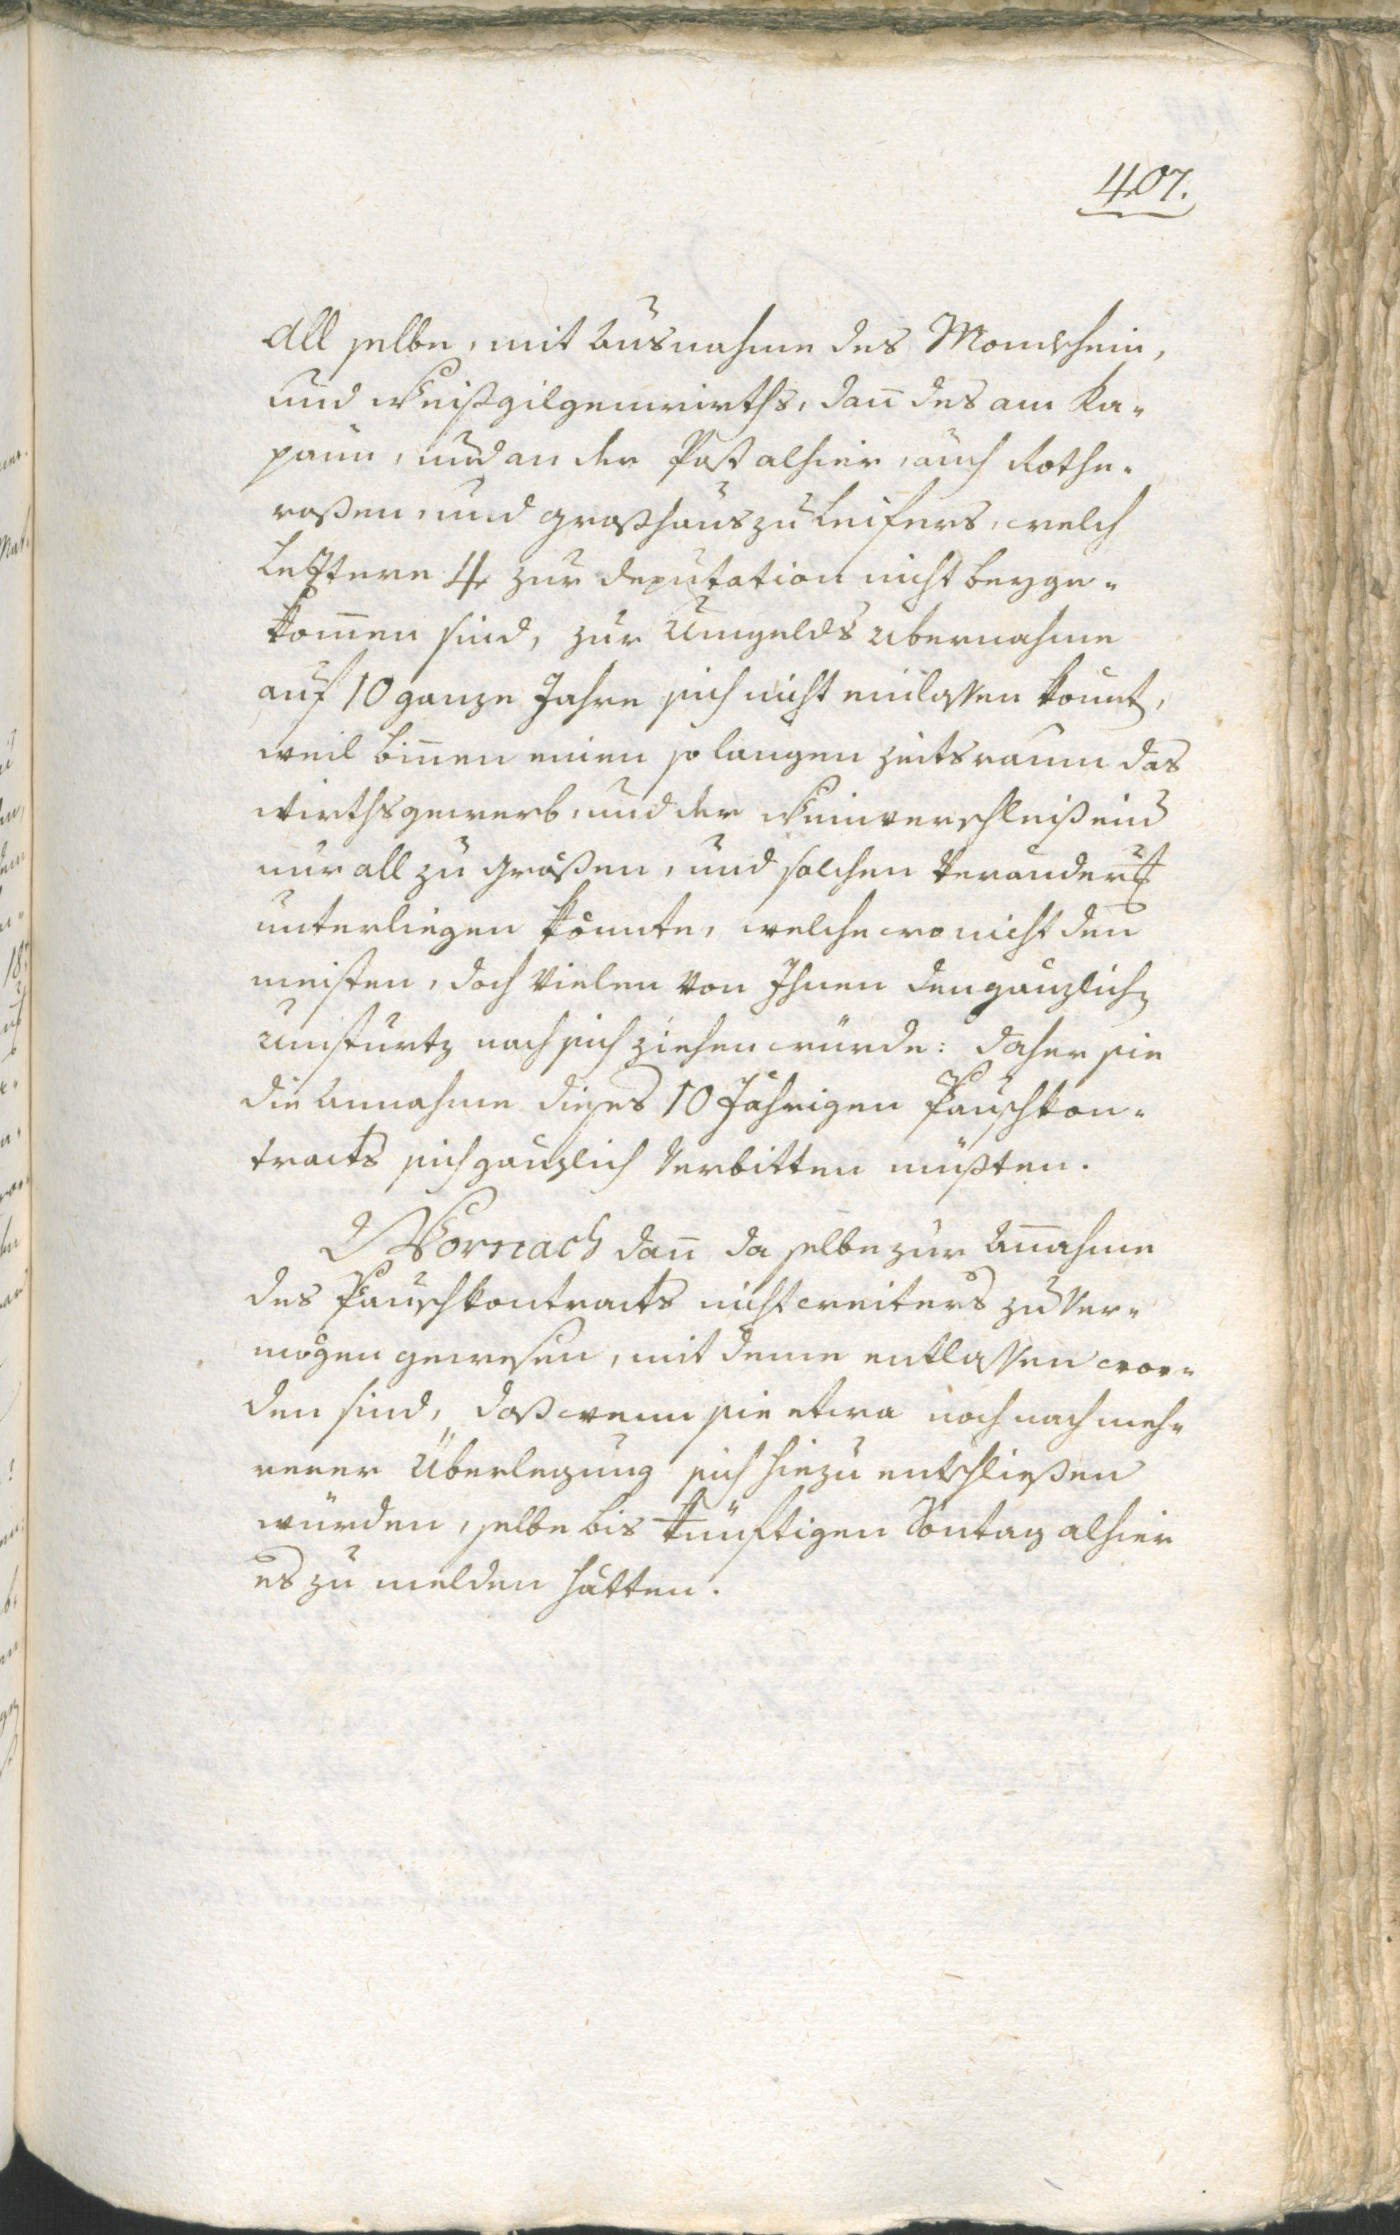 407.
All selbe, mit Ausnahme des Mondschein,
und Weißgilgenwirths, dan̄ des am Ka-
paun, und an der Post alhier, auch Rothe-
roßen, und Großhaus zu Leifers, welch
Leztere 4 zur Deputation nicht beyge-
kom̄en sind, zur Umgelds übernahme
auf 10 ganze Jahre sich nicht einlassen kon̄t,
weil bin̄en einen so langen Zeitsraum das
Wirthsgewerb, und der Weinverschleiß
nur all zu großen, und solchen Veränder
unterliegen könnte, welche wo nicht den
meisten, doch vielen von Ihnen den gänzlich
Umsturtz nach sich ziehen würde: daher sie
die Annahme dieses 10 Jährigen Pauschkon-
tracts sich gänzlich verbitten müßten.
Wornach dan̄ da selbe zur An̄ahme
des Pauschkontracts nicht weiters zu ver-
mögen gewesen, mit deme entlassen wor-
den sind, daß wenn sie etwa noch nach meh-
rerer Überlegung sich hiezu entschließen
würden, selbe bis künftigen Sontag alhier
es zu melden hätten.